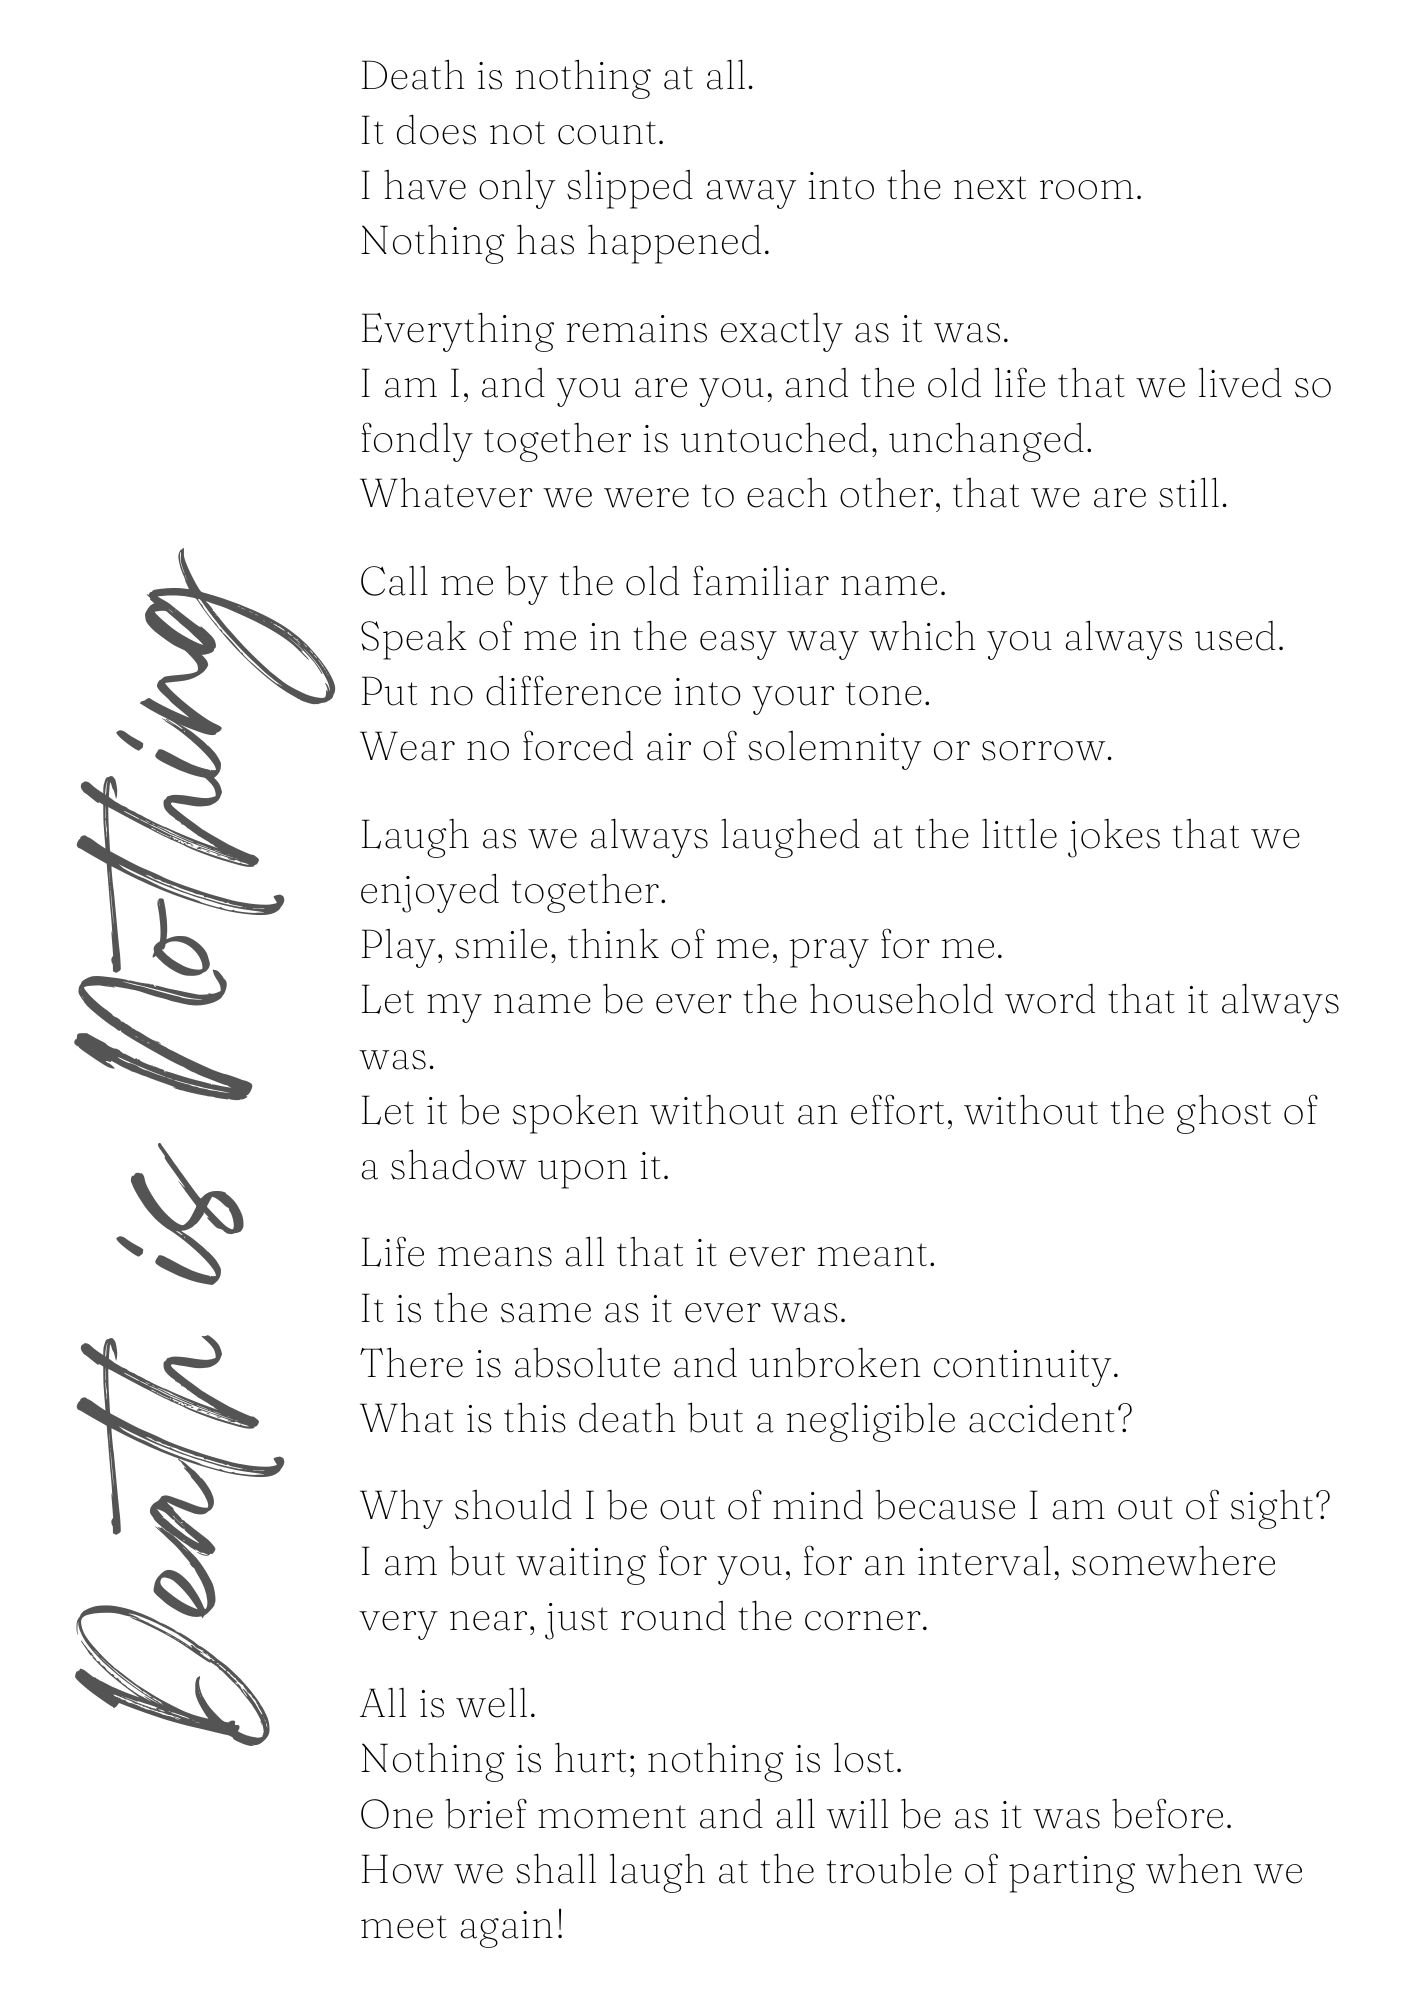 Death is Nothing
Death is nothing at all.
It does not count.
I have only slipped away into the next room.
Nothing has happened.
Everything remains exactly as it was.
I am I, and you are you, and the old life that we lived so
fondly together is untouched, unchanged.
Whatever we were to each other, that we are still.
Call me by the old familiar name.
Speak of me in the easy way which you always used.
Put no difference into your tone.
Wear no forced air of solemnity or sorrow.
Laugh as we always laughed at the little jokes that we
enjoyed together.
Play, smile, think of me, pray for me.
Let my name be ever the household word that it always
was.
Let it be spoken without an effort, without the ghost of
a shadow upon it.
Life means all that it ever meant.
It is the same as it ever was.
There is absolute and unbroken continuity.
What is this death but a negligible accident?
Why should I be out of mind because I am out of sight?
I am but waiting for you, for an interval, somewhere
very near, just round the corner.
All is well.
Nothing is hurt; nothing is lost.
One brief moment and all will be as it was before.
How we shall laugh at the trouble of parting when we
meet again!